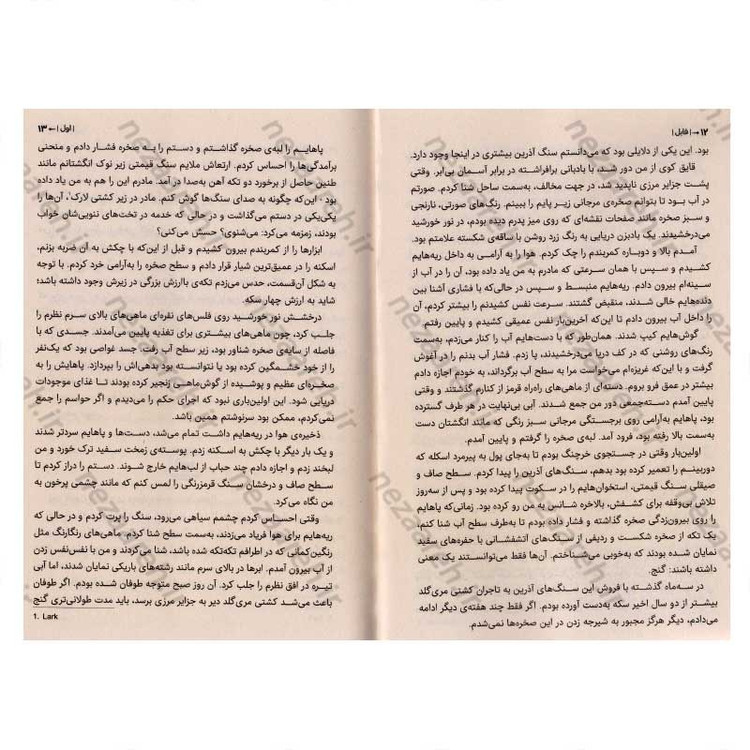 ۱۲ → | فابل |
بود. این یکی از دلایلی بود که می‌دانستم سنگ آذرین بیشتری در اینجا وجود دارد.
قایق کوی از من دور شد، با بادبانی برافراشته در برابر آسمان بی‌ابر. وقتی
پشت جزایر مرزی ناپدید شد، در جهت مخالف، به‌سمت ساحل شنا کردم. صورتم
در آب بود تا بتوانم صخره‌ی مرجانی زیر پایم را ببینم. رنگ‌های صورتی، نارنجی
و سبز صخره مانند صفحات نقشه‌ای که روی میز پدرم دیده بودم، در نور خورشید
می‌درخشیدند. یک بادبزن دریایی به رنگ زرد روشن با ساقه‌ی شکسته علامتم بود.
آمدم بالا و دوباره کمربندم را چک کردم. هوا را به آرامی به داخل ریه‌هایم
کشیدم و سپس با همان سرعتی که مادرم به من یاد داده بود، آن را در آب از
سینه‌ام بیرون دادم. ریه‌هایم منبسط و سپس در حالی‌که با فشاری آشنا بین
دنده‌هایم خالی شدند، منقبض گشتند. سرعت نفس کشیدنم را بیشتر کردم، آن
را داخل آب بیرون دادم تا این‌که آخرین‌بار نفس عمیقی کشیدم و پایین رفتم.
گوش‌هایم کیپ شدند. همان‌طور که با دست‌هایم آب را کنار می‌زدم، به‌سمت
رنگ‌های روشنی که در کف دریا می‌درخشیدند، پا زدم. فشار آب بدنم را در آغوش
گرفت و با این‌که غریزه‌ام می‌خواست مرا به سطح آب برگرداند، به خودم اجازه دادم
بیشتر در عمق فرو بروم. دسته‌ای از ماهی‌های راه‌راه قرمز از کنارم گذشتند و وقتی
پایین آمدم دسته‌جمعی دور من جمع شدند. آبی بی‌نهایت در هر طرف گسترده
بود، پاهایم به‌آرامی روی برجستگی مرجانی سبز رنگی که مانند انگشتان دست
به‌سمت بالا رفته بود، فرود آمد. لبه‌ی صخره را گرفتم و پایین آمدم.
اولین‌بار وقتی در جستجوی خرچنگ بودم تا به‌جای پول به پیرمرد اسکله که
دوربینم را تعمیر کرده بود بدهم، سنگ‌های آذرین را پیدا کردم. سطح صاف و
صیقلی سنگ قیمتی، استخوان‌هایم را در سکوت پیدا کرده بود و پس از سه‌روز
تلاش بی‌وقفه برای کشفش، بالاخره شانس به من رو کرده بود. زمانی‌که پاهایم
را روی بیرون‌زدگی صخره گذاشته و فشار داده بودم تا به‌طرف سطح آب شنا کنم،
یک تکه از صخره شکست و ردیفی از سنگ‌های آتشفشانی با حفره‌های سفید
نمایان شده بودند که به‌خوبی می‌شناختم. آن‌ها فقط می‌توانستند یک معنی
داشته باشند: گنج.
در سه‌ماه گذشته با فروش این سنگ‌های آذرین به تاجران کشتی مری‌گلد
بیشتر از دو سال اخیر سکه به‌دست آورده بودم. اگر فقط چند هفته‌ی دیگر ادامه
می‌دادم، دیگر هرگز مجبور به شیرجه زدن در این صخره‌ها نمی‌شدم.
| اول | ← ۱۳
پاهایم را لبه‌ی صخره گذاشتم و دستم را به صخره فشار دادم و منحنی
برآمدگی‌ها را احساس کردم. ارتعاش ملایم سنگ قیمتی زیر نوک انگشتانم مانند
طنین حاصل از برخورد دو تکه آهن به‌صدا در آمد. مادرم این را هم به من یاد داده
بود - این‌که چگونه به صدای سنگ‌ها گوش کنم. مادر در زیر کشتی لارک¹، آن‌ها را
یکی‌یکی در دستم می‌گذاشت و در حالی که خدمه در تخت‌های ننویی‌شان خواب
بودند، زمزمه می‌کرد: می‌شنوی؟ حسش می‌کنی؟
ابزارها را از کمربندم بیرون کشیدم و قبل از این‌که با چکش به آن ضربه بزنم،
اسکنه را در عمیق‌ترین شیار قرار دادم و سطح صخره را به‌آرامی خرد کردم. با توجه
به شکل آن‌قسمت، حدس می‌زدم تکه‌ی باارزش بزرگی در زیرش وجود داشته باشد؛
شاید به ارزش چهار سکه.
درخشش نور خورشید روی فلس‌های نقره‌ای ماهی‌های بالای سرم نظرم را
جلب کرد، چون ماهی‌های بیشتری برای تغذیه پایین می‌آمدند. جسدی که با
فاصله از سایه‌ی صخره شناور بود، زیر سطح آب رفت؛ جسد غواصی بود که یک‌نفر
را از خود خشمگین کرده بود یا نتوانسته بود بدهی‌اش را بپردازد. پاهایش را به
صخره‌ای عظیم و پوشیده از گوش‌ماهی زنجیر کرده بودند تا غذای موجودات
دریایی شود. این اولین‌باری نبود که اجرای حکم را می‌دیدم و اگر حواسم را جمع
نمی‌کردم، ممکن بود سرنوشتم همین باشد.
ذخیره‌ی هوا در ریه‌هایم داشت تمام می‌شد، دست‌ها و پاهایم سردتر شدند
و یک بار دیگر با چکش به اسکنه زدم. پوسته‌ی زمخت سفید ترک خورد و من
لبخند زدم و اجازه دادم چند حباب از لب‌هایم خارج شوند. دستم را دراز کردم تا
سطح صاف و درخشان سنگ قرمزرنگی را لمس کنم که مانند چشمی پرخون به
من نگاه می‌کرد.
وقتی احساس کردم چشمم سیاهی می‌رود، سنگ را پرت کردم و در حالی که
ریه‌هایم برای هوا فریاد می‌زدند، به‌سمت سطح شنا کردم. ماهی‌های رنگارنگ مثل
رنگین‌کمانی که در اطرافم تکه‌تکه شده باشد، شنا می‌کردند و من با نفس‌نفس زدن
از آب بیرون آمدم. ابرها در بالای سرم مانند رشته‌های باریکی نمایان شدند، اما آبی
تیره در افق نظرم را جلب کرد. آن روز صبح متوجه طوفان شده بودم. اگر طوفان
باعث می‌شد کشتی مری‌گلد دیر به جزایر مرزی برسد، باید مدت طولانی‌تری گنج
1. Lark
nezamieh.ir